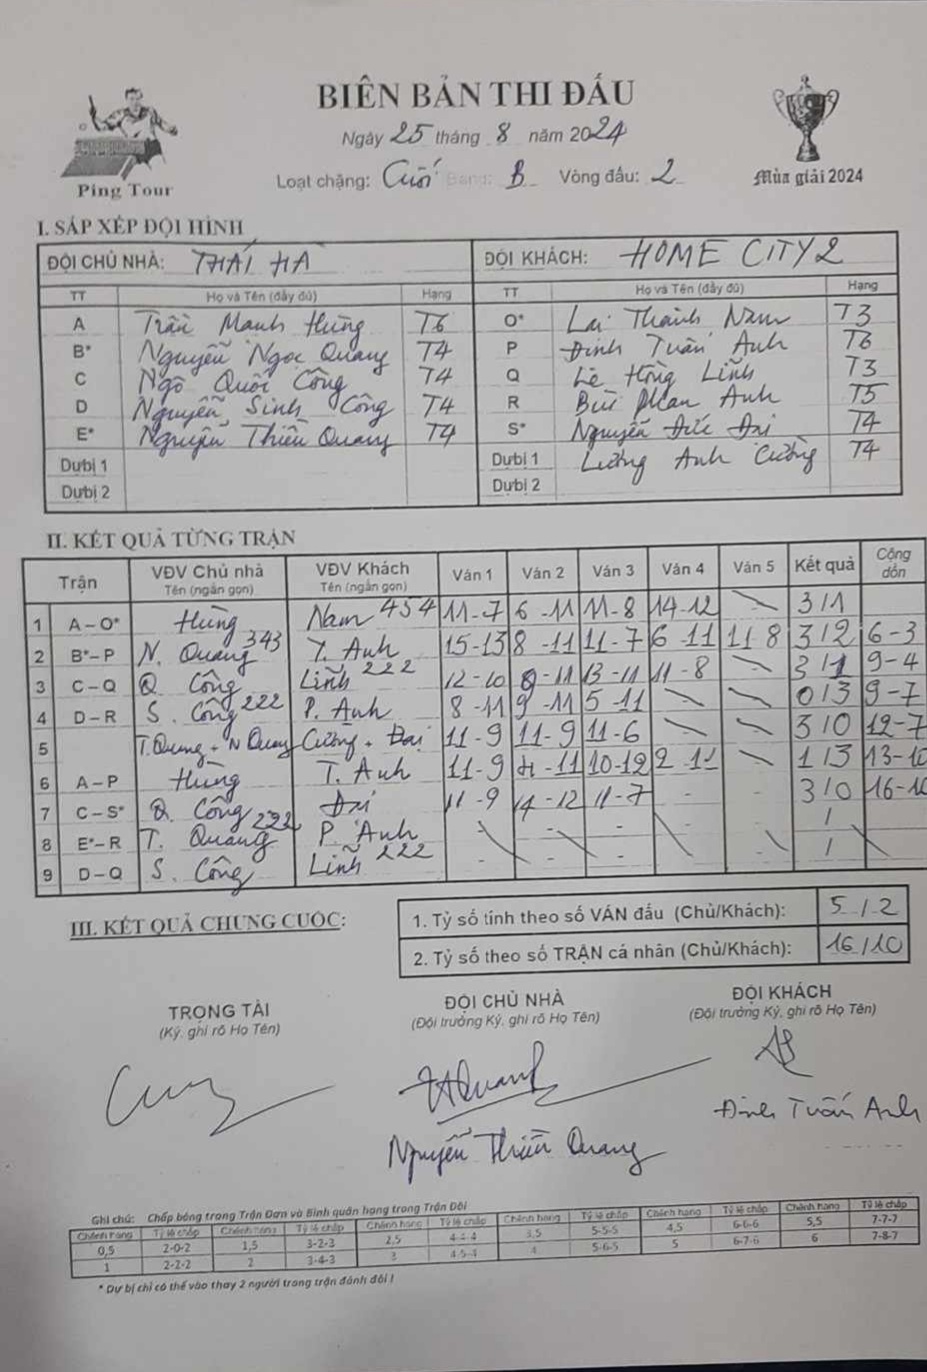 BIÊN BẢN THI ĐẤU
Ngày 25 tháng 8 năm 2024
Ping Tour
Loại chặng: Cuối Bảng: B Vòng đấu: 2
Mùa giải 2024
I. SẮP XẾP ĐỘI HÌNH
ĐỘI CHỦ NHÀ: THÁI HÀ ĐỘI KHÁCH: HOME CITY 2
TT Họ và Tên (đầy đủ) Hạng TT Họ và Tên (đầy đủ) Hạng
A Trần Mạnh Hùng T6 O* Lại Thành Nam T3
B* Nguyễn Ngọc Quang T4 P Đinh Tuấn Anh T6
C Ngô Quốc Công T4 Q Lê Hồng Lĩnh T3
D Nguyễn Sinh Công T4 R Bùi Phan Anh T5
E* Nguyễn Thiều Quang T4 S* Nguyễn Đức Đại T4
Dự bị 1 Dự bị 1 Lương Anh Cường T4
Dự bị 2 Dự bị 2
II. KẾT QUẢ TỪNG TRẬN
Trận VĐV Chủ nhà Tên (ngắn gọn) VĐV Khách Tên (ngắn gọn) Ván 1 Ván 2 Ván 3 Ván 4 Ván 5 Kết quả Cộng dồn
1 A – O* Hùng Nam 454 11-7 6-11 11-8 14-12 3/1
2 B* – P N. Quang 343 T. Anh 15-13 8-11 11-7 6-11 11-8 3/2 6-3
3 C – Q Q Công Lĩnh 222 12-10 9-11 13-11 11-8 3/1 9-4
4 D – R S. Công 222 P. Anh 8-11 9-11 5-11 0/3 9-7
5 T. Quang + N Quang Cường + Đại 11-9 11-9 11-6 3/0 12-7
6 A – P Hùng T. Anh 11-9 11-11 10-12 2-11 1/3 13-10
7 C – S* Q. Công Đại 11-9 14-12 11-7 - - 3/0 16-10
8 E* – R T. Quang 222 P. Anh - - - - - /
9 D – Q S. Công Lĩnh 222 - - - - - /
III. KẾT QUẢ CHUNG CUỘC:
1. Tỷ số tính theo số VÁN đấu (Chủ/Khách): 5/2
2. Tỷ số theo số TRẬN cá nhân (Chủ/Khách): 16/10
TRỌNG TÀI ĐỘI CHỦ NHÀ ĐỘI KHÁCH
(Ký, ghi rõ Họ Tên) (Đội trưởng Ký, ghi rõ Họ Tên) (Đội trưởng Ký, ghi rõ Họ Tên)
Đinh Tuấn Anh
Nguyễn Thiều Quang
Ghi chú: Chấp bóng trong Trận Đơn và Bình quân hạng trong Trận Đôi
Chênh hạng Tỷ lệ chấp Chênh hạng Tỷ lệ chấp Chênh hạng Tỷ lệ chấp Chênh hạng Tỷ lệ chấp Chênh hạng Tỷ lệ chấp Chênh hạng Tỷ lệ chấp
0,5 2-0-2 1,5 3-2-3 2,5 4-4-4 3,5 5-5-5 4,5 6-6-6 5,5 7-7-7
1 2-2-2 2 3-4-3 3 4-5-4 4 5-6-5 5 6-7-6 6 7-8-7
* Dự bị chỉ có thể vào thay 2 người trong trận đánh đôi !